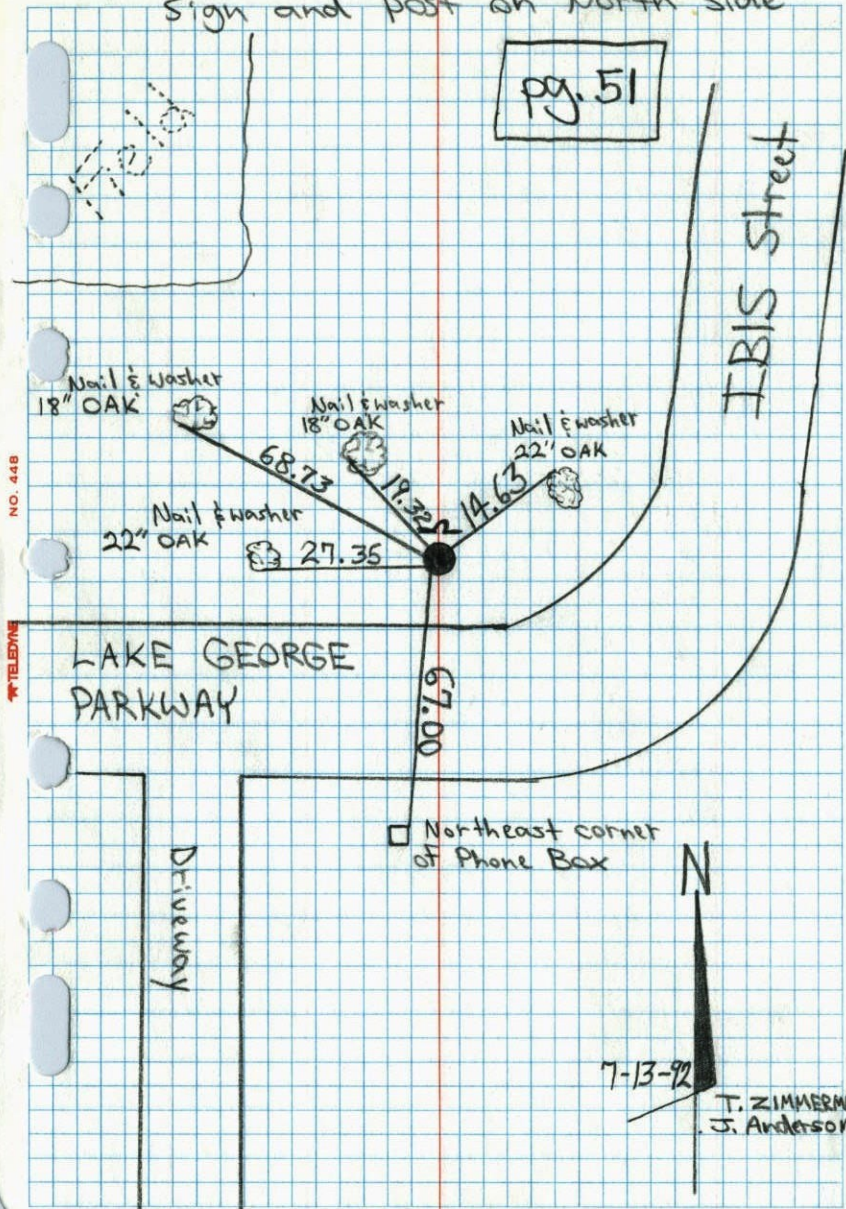 Sign and post on North side
pg. 51
Field
IBIS Street
Nail & washer
18" OAK
Nail & washer
18" OAK
Nail & washer
22" OAK
68.73
19.32
14.63
Nail & washer
22" OAK
27.35
NO. 448
TELEDYNE
LAKE GEORGE
PARKWAY
67.00
Northeast corner
of Phone Box
Driveway
N
7-13-92
T. ZIMMERM
J. Anderson